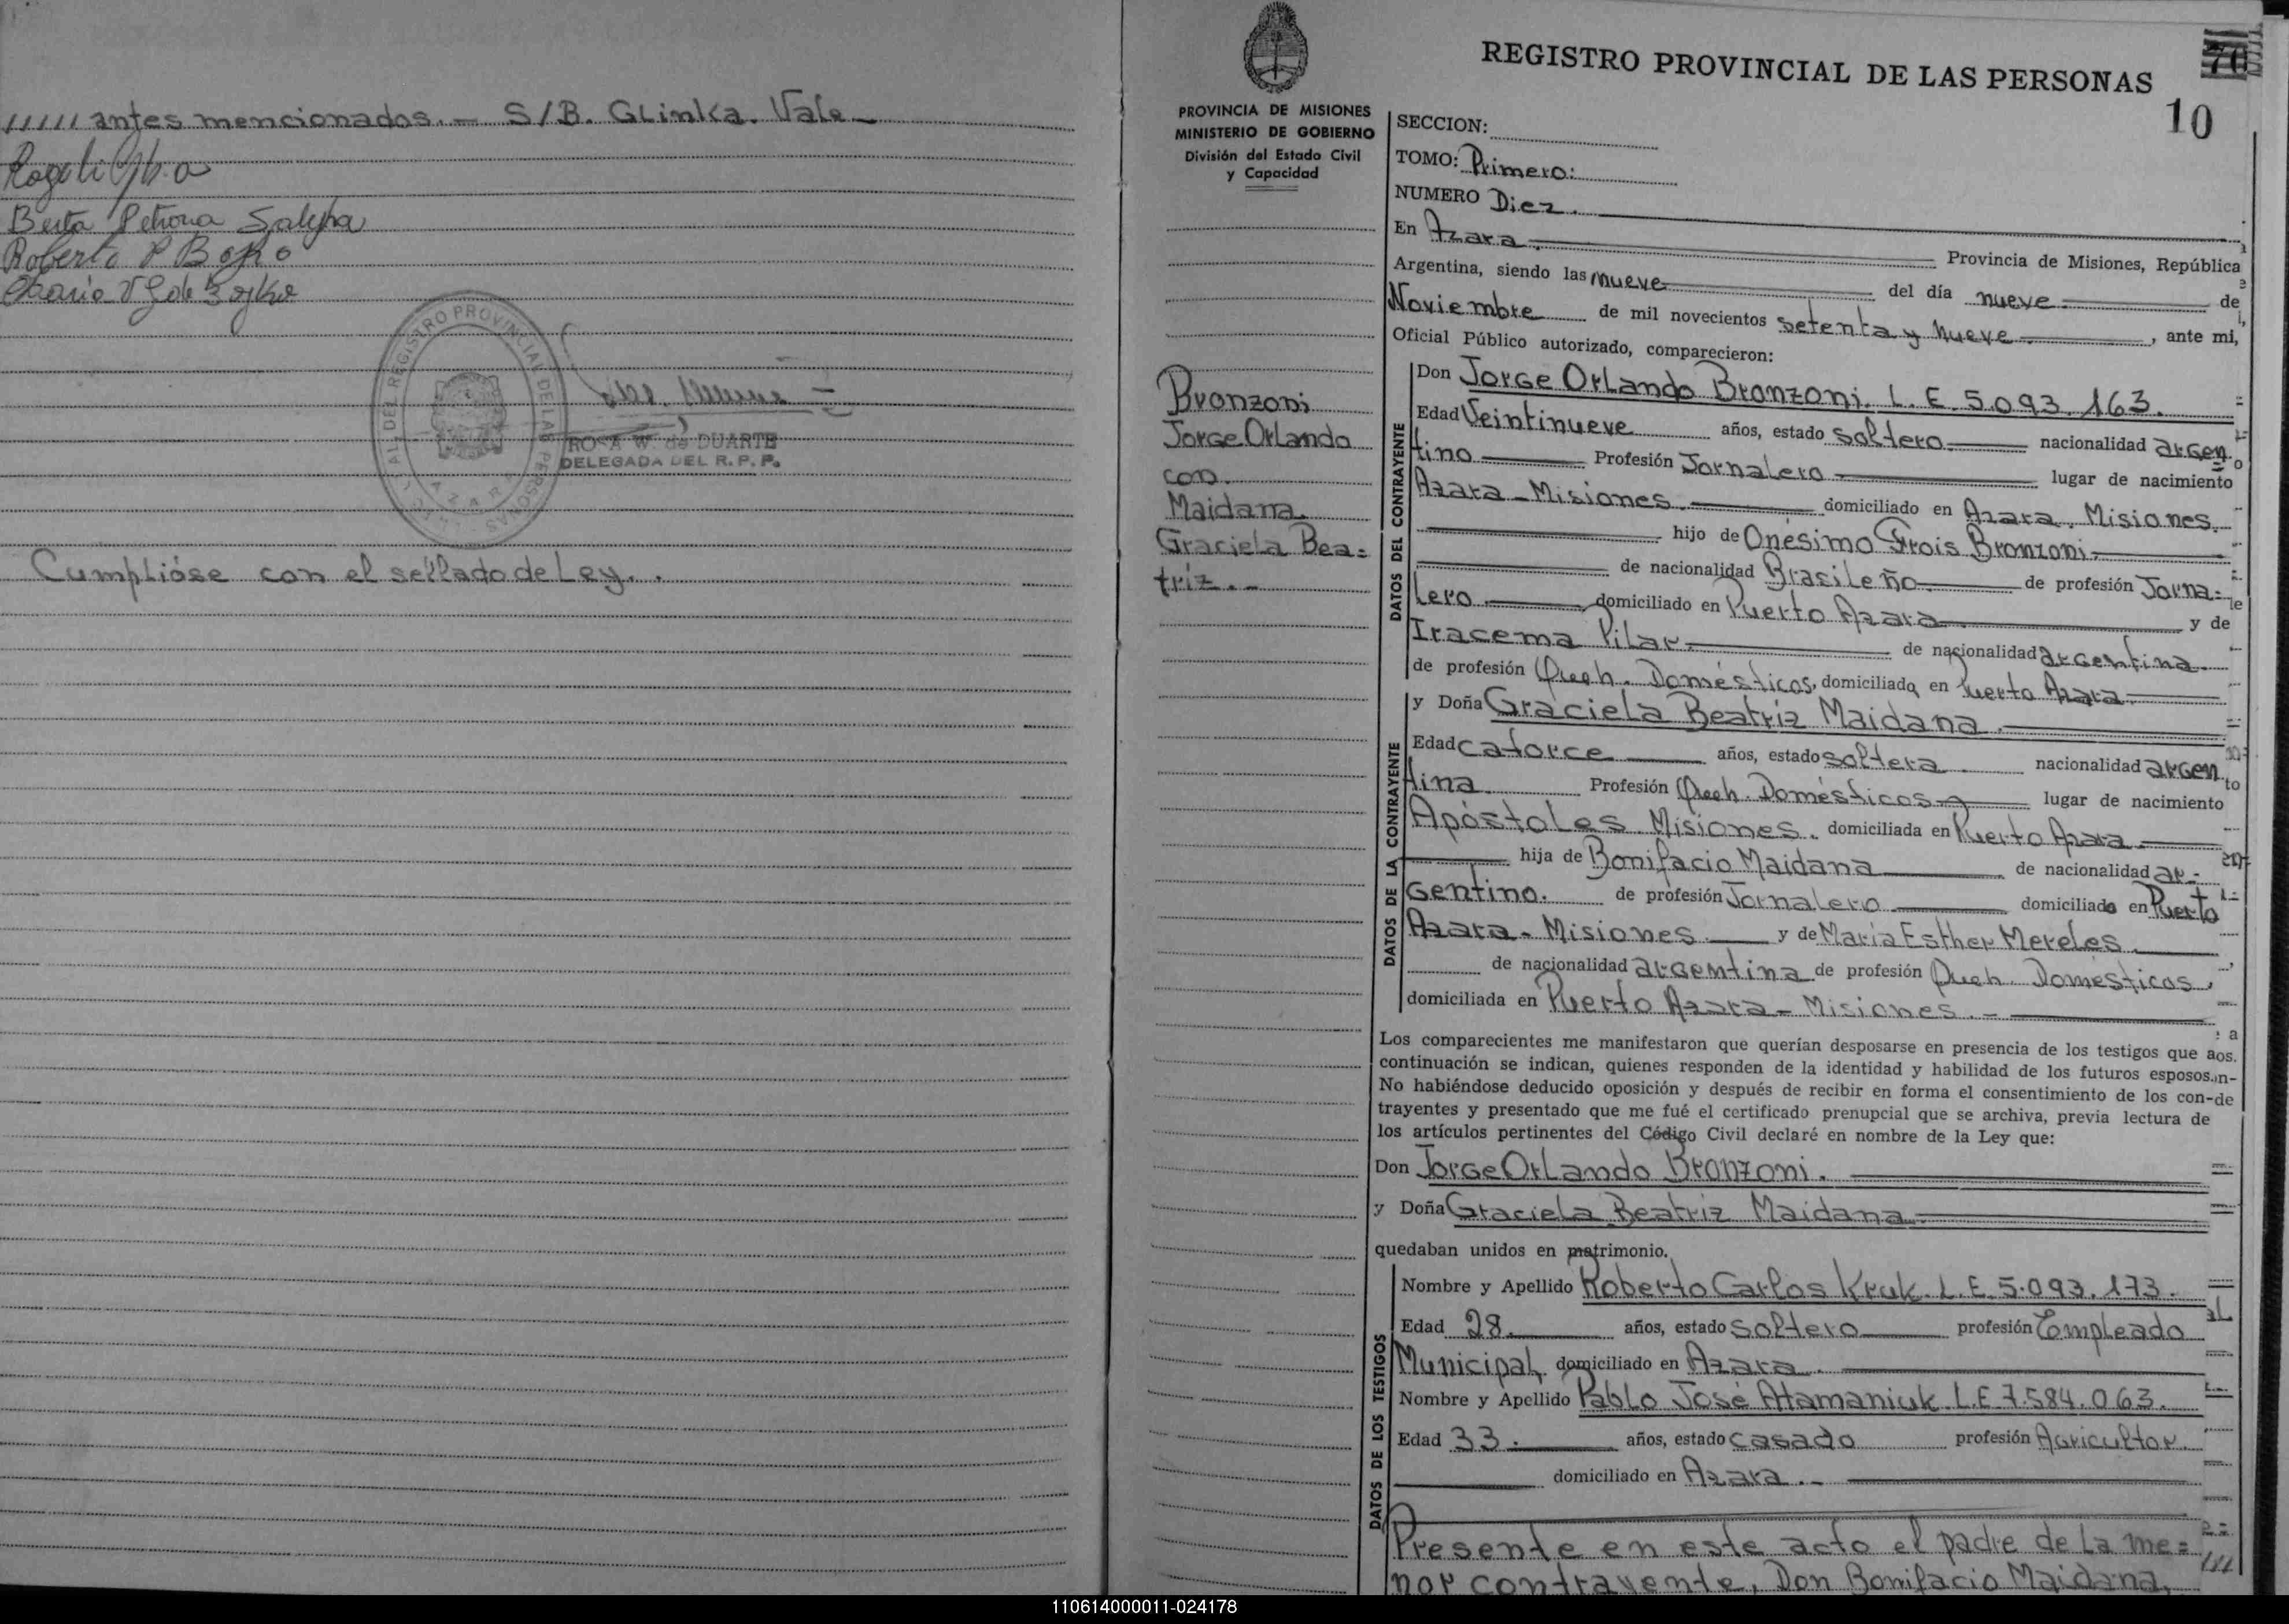 ///// antes mencionados. — S/B. GLinka. Vale —
Berta Petrona
Roberto P Bojko
REGISTRO PROVINCIAL DE LAS PERSONAS
AZARA
ROSA W. de DUARTE
DELEGADA DEL R. P. P.
Cumplióse con el sellado de Ley. .
PROVINCIA DE MISIONES
MINISTERIO DE GOBIERNO
División del Estado Civil
y Capacidad
Bronzoni
Jorge Orlando
con
Maidana
Graciela Bea=
triz. —
REGISTRO PROVINCIAL DE LAS PERSONAS
70
10
SECCION:
TOMO: Primero:
NUMERO Diez.
En Azara. Provincia de Misiones, República
Argentina, siendo las nueve del día nueve de
Noviembre de mil novecientos setenta y nueve, ante mi,
Oficial Público autorizado, comparecieron:
DATOS DEL CONTRAYENTE
Don Jorge Orlando Bronzoni. L. E. 5.093.163.
Edad Veintinueve años, estado soltero nacionalidad argen
tino Profesión Jornalero lugar de nacimiento
Azara - Misiones. domiciliado en Azara. Misiones.
hijo de Onésimo Frois Bronzoni
de nacionalidad Brasileño de profesión Jorna=
lero domiciliado en Puerto Azara y de
Iracema Pilar de nacionalidad argentina
de profesión Queh. Domésticos, domiciliada en Puerto Azara
DATOS DE LA CONTRAYENTE
y Doña Graciela Beatriz Maidana.
Edad catorce años, estado soltera nacionalidad argen
tina Profesión Queh. Domésticos lugar de nacimiento
Apóstoles Misiones. domiciliada en Puerto Azara
hija de Bonifacio Maidana de nacionalidad ar-
gentino. de profesión Jornalero domiciliado en Puerto
Azara - Misiones y de María Esther Mereles
de nacionalidad argentina de profesión Queh. Domésticos,
domiciliada en Puerto Azara - Misiones. —
Los comparecientes me manifestaron que querían desposarse en presencia de los testigos que a
continuación se indican, quienes responden de la identidad y habilidad de los futuros esposos.
No habiéndose deducido oposición y después de recibir en forma el consentimiento de los con-
trayentes y presentado que me fué el certificado prenupcial que se archiva, previa lectura de
los artículos pertinentes del Código Civil declaré en nombre de la Ley que:
Don Jorge Orlando Bronzoni.
y Doña Graciela Beatriz Maidana
quedaban unidos en matrimonio.
DATOS DE LOS TESTIGOS
Nombre y Apellido Roberto Carlos Kruk. L. E. 5.093.173.
Edad 28. años, estado soltero profesión Empleado
Municipal, domiciliado en Azara.
Nombre y Apellido Pablo José Atamaniuk L.E 7.584.063.
Edad 33. años, estado casado profesión Agricultor
domiciliado en Azara. —
Presente en este acto el padre de la me=
nor contrayente, Don Bonifacio Maidana,
110614000011-024178